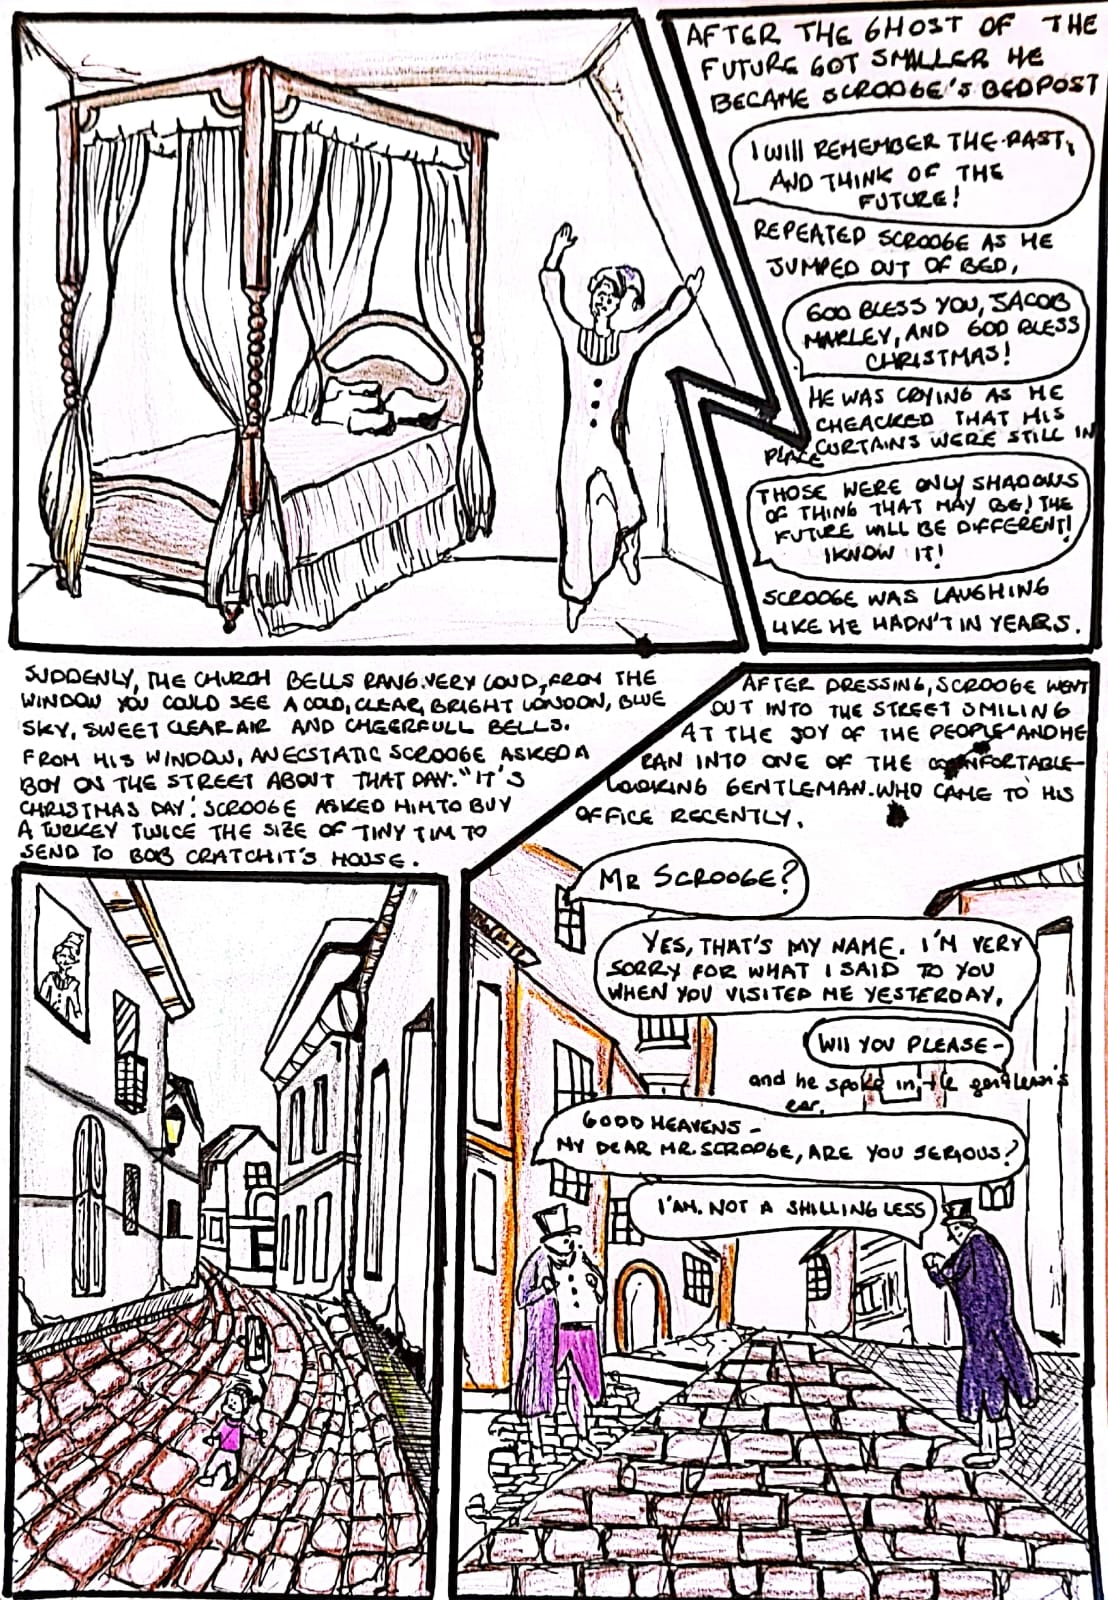 AFTER THE GHOST OF THE
FUTURE GOT SMALLER HE
BECAME SCROOGE'S BEDPOST
I WILL REMEMBER THE PAST,
AND THINK OF THE
FUTURE!
REPEATED SCROOGE AS HE
JUMPED OUT OF BED,
GOD BLESS YOU, JACOB
MARLEY, AND GOD BLESS
CHRISTMAS!
HE WAS CRYING AS HE
CHEACKED THAT HIS
CURTAINS WERE STILL IN
PLACE
THOSE WERE ONLY SHADOWS
OF THING THAT MAY BE! THE
FUTURE WILL BE DIFFERENT!
I KNOW IT!
SCROOGE WAS LAUGHING
LIKE HE HADN'T IN YEARS.
SUDDENLY, THE CHURCH BELLS RANG VERY LOUD, FROM THE
WINDOW YOU COULD SEE A COLD, CLEAR, BRIGHT LONDON, BLUE
SKY, SWEET CLEAR AIR AND CHEERFULL BELLS.
FROM HIS WINDOW, AN ECSTATIC SCROOGE ASKED A
BOY ON THE STREET ABOUT THAT DAY. "IT'S
CHRISTMAS DAY". SCROOGE ASKED HIM TO BUY
A TURKEY TWICE THE SIZE OF TINY TIM TO
SEND TO BOB CRATCHIT'S HOUSE.
AFTER DRESSING, SCROOGE WENT
OUT INTO THE STREET SMILING
AT THE JOY OF THE PEOPLE AND HE
RAN INTO ONE OF THE COMFORTABLE-
LOOKING GENTLEMAN. WHO CAME TO HIS
OFFICE RECENTLY.
MR SCROOGE?
YES, THAT'S MY NAME. I'M VERY
SORRY FOR WHAT I SAID TO YOU
WHEN YOU VISITED ME YESTERDAY.
WILL YOU PLEASE -
and he spoke in the gentleman's
ear.
GOOD HEAVENS -
MY DEAR MR. SCROOGE, ARE YOU SERIOUS?
I'AM. NOT A SHILLING LESS